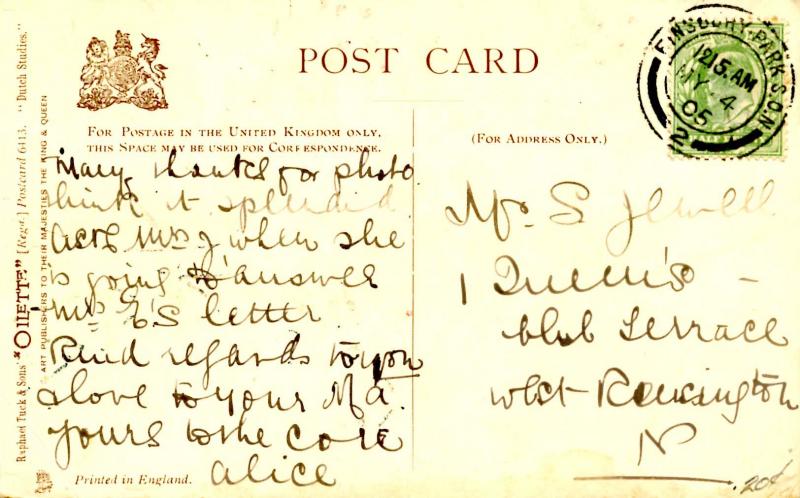 POST CARD
FOR POSTAGE IN THE UNITED KINGDOM ONLY,
THIS SPACE MAY BE USED FOR CORRESPONDENCE.
(FOR ADDRESS ONLY.)
Many thanks for photo
think it splendid
ask Mrs J when she
is going to answer
Mrs E'S letter
Kind regards to you
& love to your Ma.
Yours to the core
alice
Mr. S Jewell
1 Queen's -
club Terrace
West Kensington
.20¢
Printed in England.
Raphael Tuck & Sons' "OILETTE" [Regd.] Postcard 6413. "Dutch Studies."
ART PUBLISHERS TO THEIR MAJESTIES THE KING & QUEEN
FINSBURY PARK S.O.N
12 15. AM
MY 4
05
2